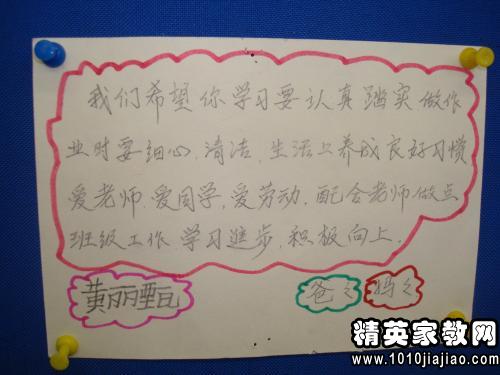 我们希望你学习要认真踏实做作
业时要细心,清洁.生活上养成良好习惯
爱老师.爱同学,爱劳动.配合老师做点
班级工作 学习进步.积极向上.
黄丽甄 爸々 妈々
精英家教网
http://www.1010jiajiao.com